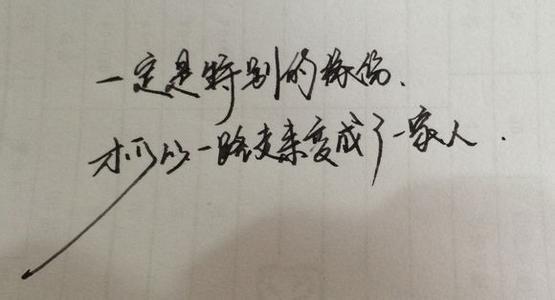 一定是特别的缘份、
才可以一路走来变成了一家人.